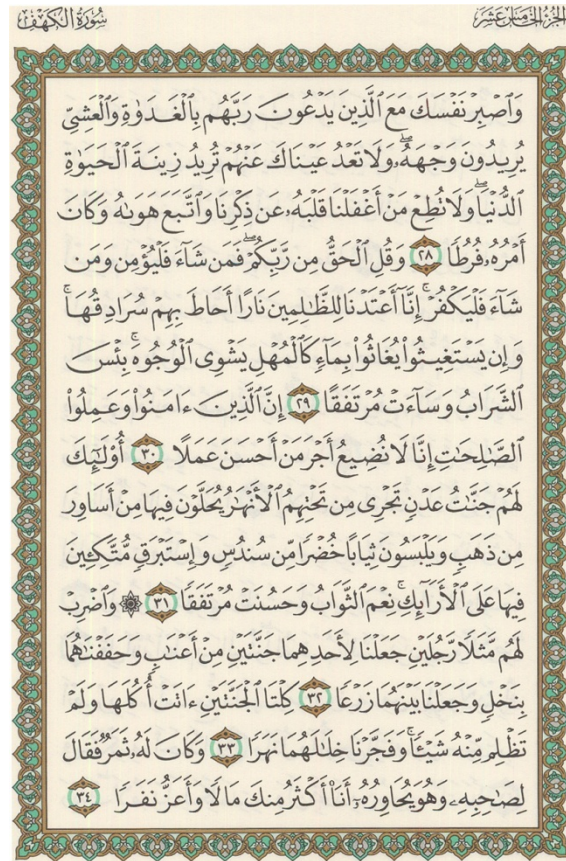 الجزء الخامس عشر
سورة الكهف
وَٱصۡبِرۡ نَفۡسَكَ مَعَ ٱلَّذِينَ يَدۡعُونَ رَبَّهُم بِٱلۡغَدَوٰةِ وَٱلۡعَشِيِّ
يُرِيدُونَ وَجۡهَهُۥۖ وَلَا تَعۡدُ عَيۡنَاكَ عَنۡهُمۡ تُرِيدُ زِينَةَ ٱلۡحَيَوٰةِ
ٱلدُّنۡيَاۖ وَلَا تُطِعۡ مَنۡ أَغۡفَلۡنَا قَلۡبَهُۥ عَن ذِكۡرِنَا وَٱتَّبَعَ هَوَىٰهُ وَكَانَ
أَمۡرُهُۥ فُرُطٗا ٢٨ وَقُلِ ٱلۡحَقُّ مِن رَّبِّكُمۡۖ فَمَن شَآءَ فَلۡيُؤۡمِن وَمَن
شَآءَ فَلۡيَكۡفُرۡۚ إِنَّآ أَعۡتَدۡنَا لِلظَّٰلِمِينَ نَارًا أَحَاطَ بِهِمۡ سُرَادِقُهَاۚ
وَإِن يَسۡتَغِيثُواْ يُغَاثُواْ بِمَآءٖ كَٱلۡمُهۡلِ يَشۡوِي ٱلۡوُجُوهَۚ بِئۡسَ
ٱلشَّرَابُ وَسَآءَتۡ مُرۡتَفَقًا ٢٩ إِنَّ ٱلَّذِينَ ءَامَنُواْ وَعَمِلُواْ
ٱلصَّٰلِحَٰتِ إِنَّا لَا نُضِيعُ أَجۡرَ مَنۡ أَحۡسَنَ عَمَلًا ٣٠ أُوْلَٰٓئِكَ
لَهُمۡ جَنَّٰتُ عَدۡنٖ تَجۡرِي مِن تَحۡتِهِمُ ٱلۡأَنۡهَٰرُ يُحَلَّوۡنَ فِيهَا مِنۡ أَسَاوِرَ
مِن ذَهَبٖ وَيَلۡبَسُونَ ثِيَابًا خُضۡرٗا مِّن سُندُسٖ وَإِسۡتَبۡرَقٖ مُّتَّكِـِٔينَ
فِيهَا عَلَى ٱلۡأَرَآئِكِۚ نِعۡمَ ٱلثَّوَابُ وَحَسُنَتۡ مُرۡتَفَقٗا ٣١ ۞ وَٱضۡرِبۡ
لَهُم مَّثَلٗا رَّجُلَيۡنِ جَعَلۡنَا لِأَحَدِهِمَا جَنَّتَيۡنِ مِنۡ أَعۡنَٰبٖ وَحَفَفۡنَٰهُمَا
بِنَخۡلٖ وَجَعَلۡنَا بَيۡنَهُمَا زَرۡعٗا ٣٢ كِلۡتَا ٱلۡجَنَّتَيۡنِ ءَاتَتۡ أُكُلَهَا وَلَمۡ
تَظۡلِم مِّنۡهُ شَيۡـٔٗاۚ وَفَجَّرۡنَا خِلَٰلَهُمَا نَهَرٗا ٣٣ وَكَانَ لَهُۥ ثَمَرٞ فَقَالَ
لِصَٰحِبِهِۦ وَهُوَ يُحَاوِرُهُۥٓ أَنَا۠ أَكۡثَرُ مِنكَ مَالٗا وَأَعَزُّ نَفَرٗا ٣٤